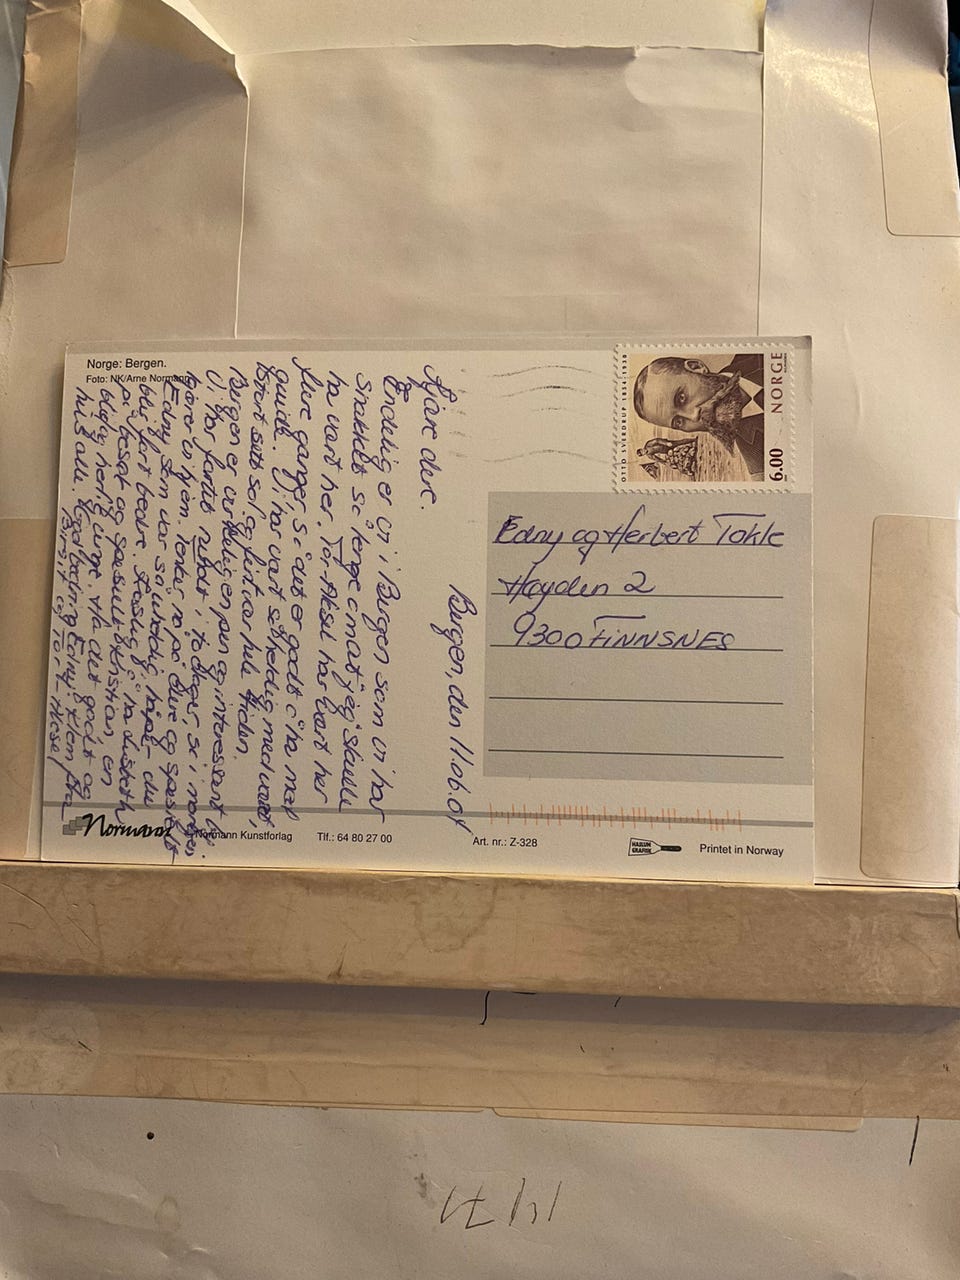 Norge: Bergen.
Foto: NK/Arne Normann
Bergen, den 11.06.04
Kjære dere.
Endelig er vi i Bergen som vi har
snakket så lenge om at jeg skulle
ha vært her. Tor Aksel har vært her
flere ganger så det er godt å ha med
guide. Vi har vært så heldig med været,
sol og fint vær hele tiden.
Bergen er virkelig en pen og interessant by.
Vi har fartet rundt i to dager, så i morgen
kjører vi hjem. Tenker nå på dere og spesielt
Edny som var så uheldig, håper du
blir fort bedre. Koselig å ha Lisbeth
på besøk og spesielt Kristian en
herlig unge. Ha det godt og
hils alle. God bedring Edny! Klem fra
Birgit og Tor Aksel
OTTO SVERDRUP 1854-1930
NORGE
6.00
Edny og Herbert Tokle
Høyden 2
9300 FINNSNES
Normann
Normann Kunstforlag
Tlf.: 64 80 27 00
Art. nr.: Z-328
HASLUM GRAFISK
Printet in Norway